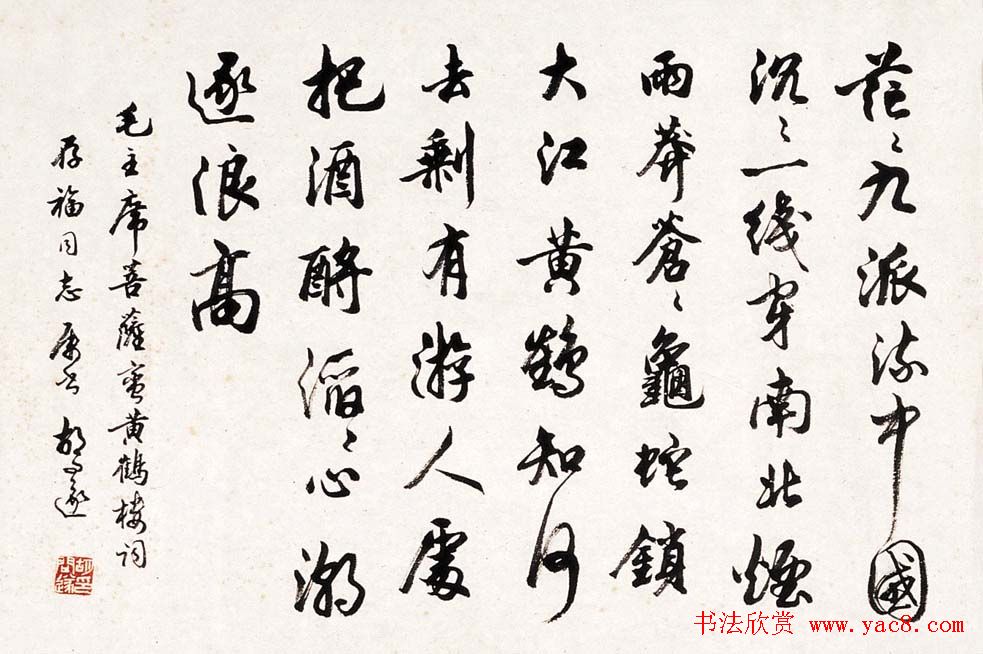 茫々九派流中國
沉々一綫穿南北煙
雨莽蒼々龜蛇鎖
大江黃鶴知何
去剩有游人處
把酒酹滔々心潮
逐浪高
毛主席菩薩蛮黄鶴楼词
存福同志属书 胡问遂
胡问遂印
书法欣赏 www.yac8.com